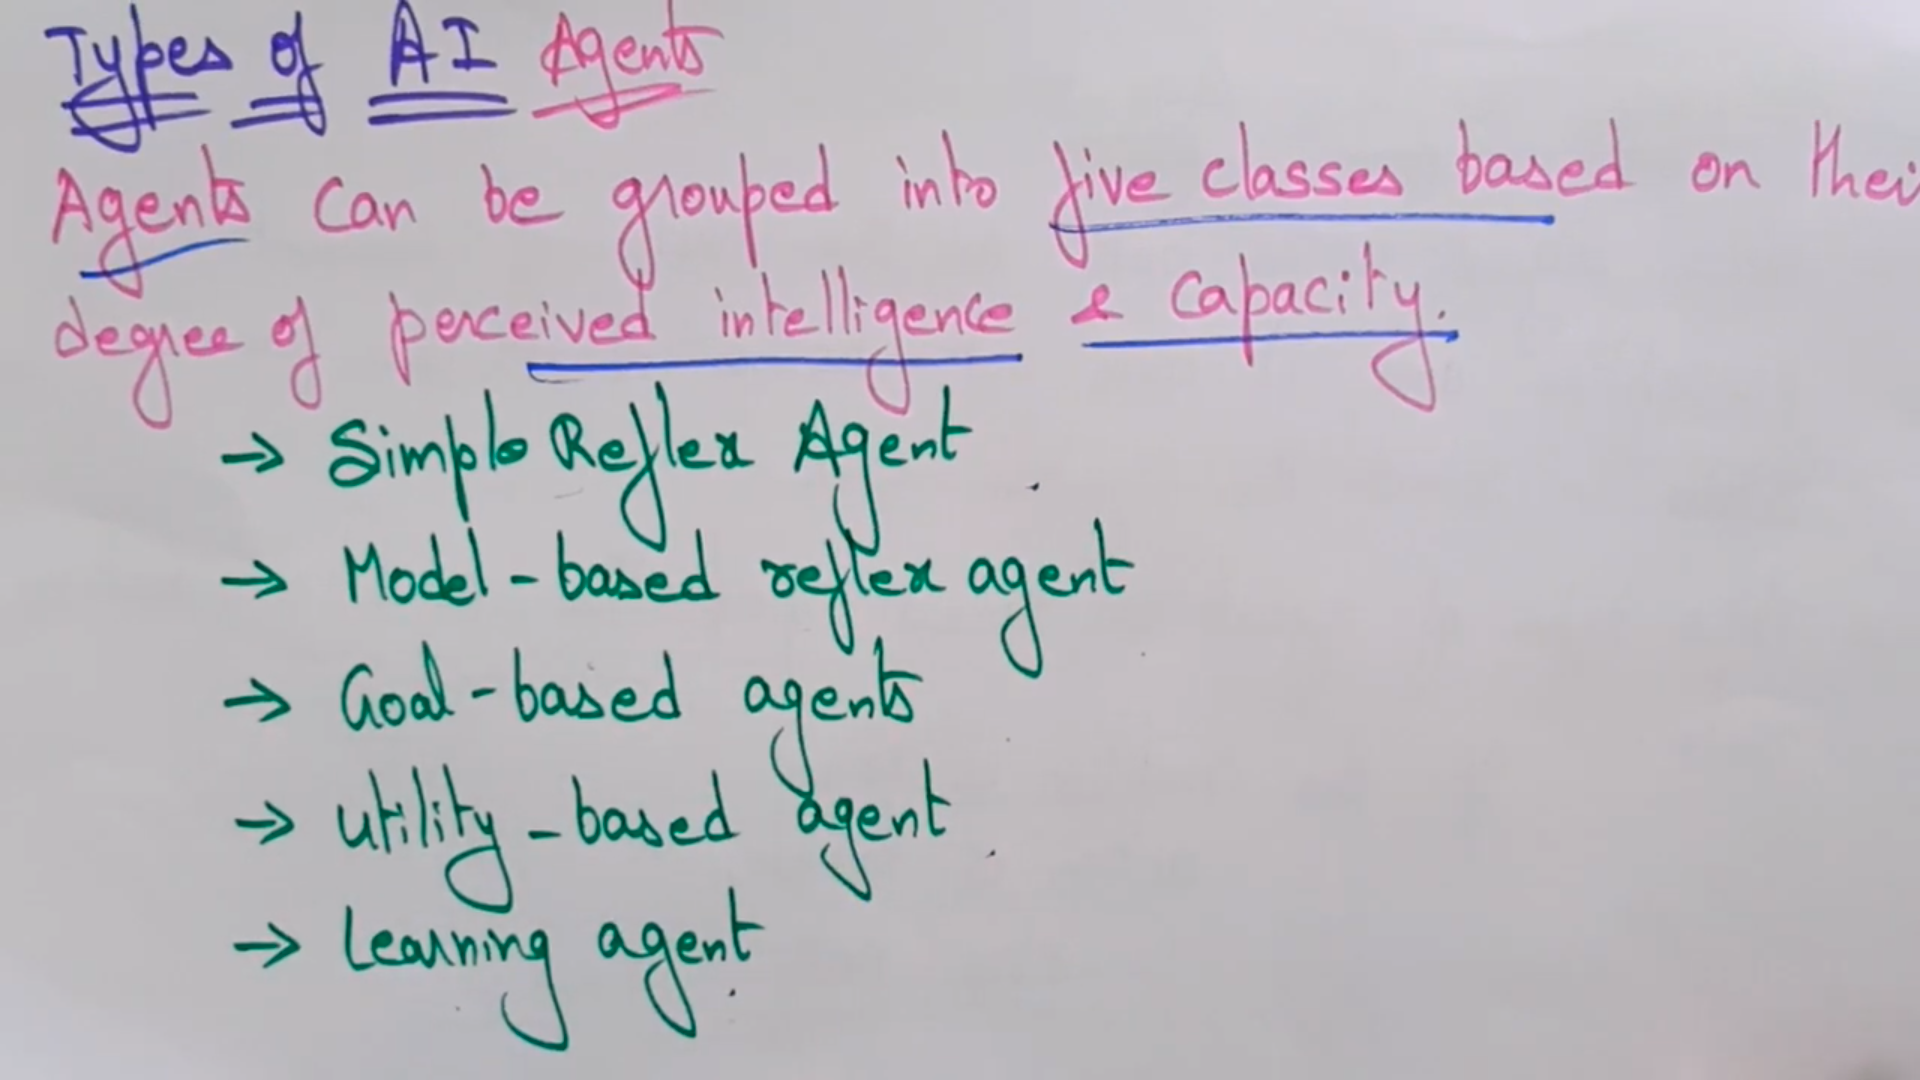 Types of AI Agents
Agents can be grouped into five classes based on thei
degree of perceived intelligence & capacity.
→ Simple Reflex Agent
→ Model-based reflex agent
→ Goal-based agents
→ utility-based agent
→ Learning agent